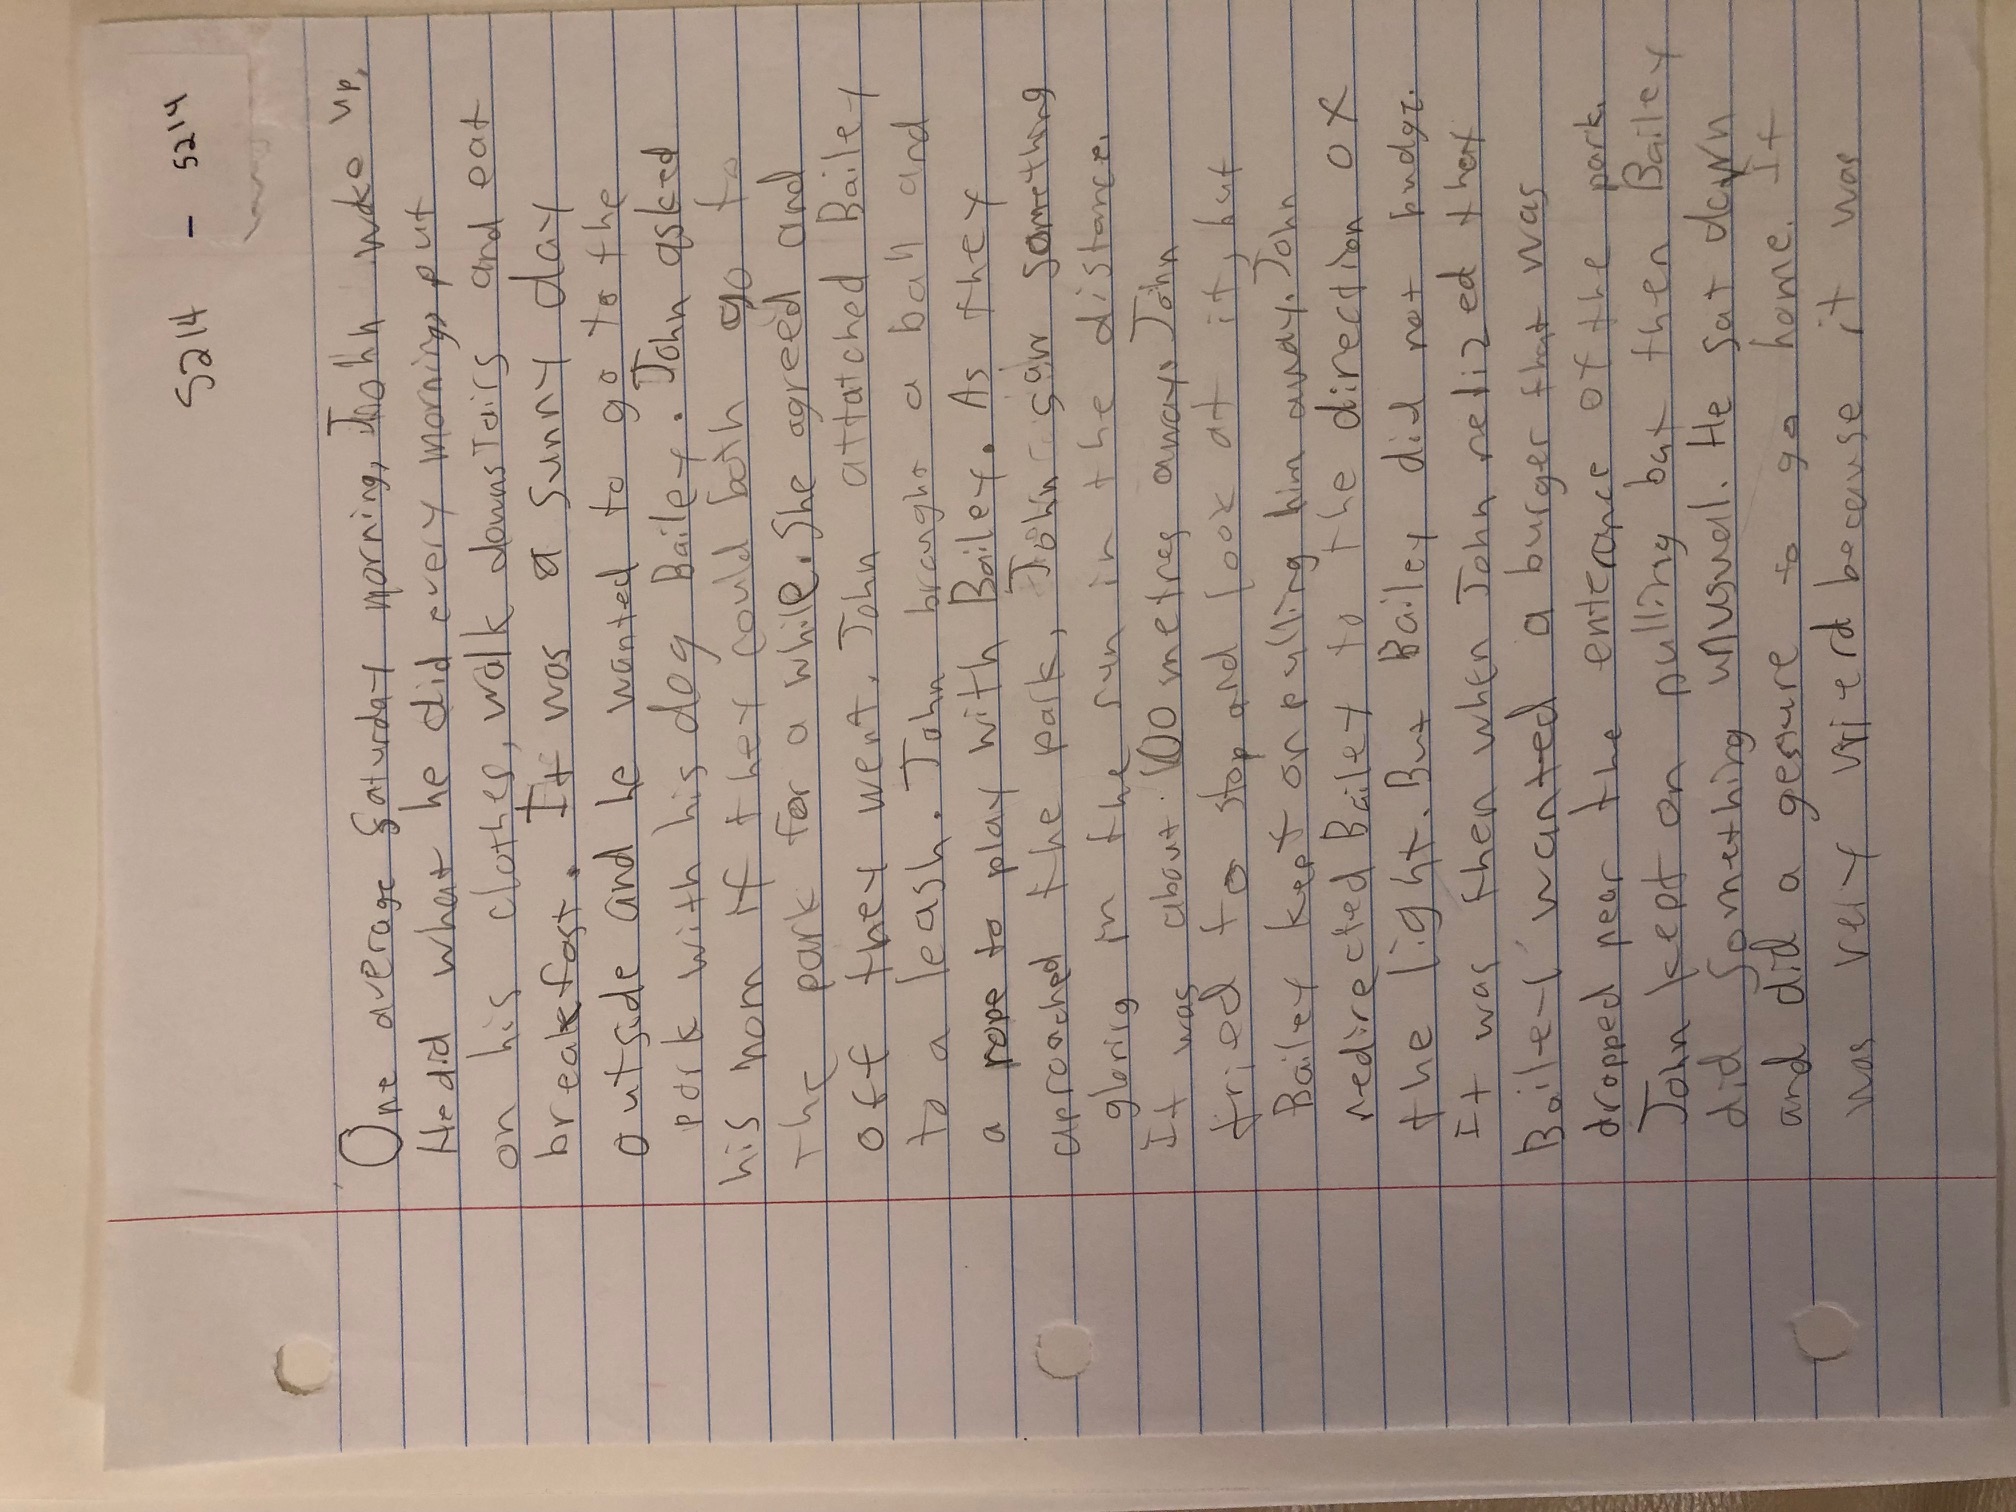 5214 - 5214
One average Saturday morning, John woke up.
He did what he did every morning, put
on his clothes, walk downstairs and eat
breakfast. It was a sunny day
outside and he wanted to go to the
park with his dog Bailey. John asked
his mom if they could both go to
the park for a while. She agreed and
off they went. John attatched Bailey
to a leash. John brought a ball and
a rope to play with Bailey. As they
aproached the park, John saw something
glaring in the sun in the distance.
It was about 100 metres away. John
tried to stop and look at it, but
Bailey kept on pulling him away. John
redirected Bailey to the direction of
the light. But Bailey did not budge.
It was then when John relized that
Bailey wanted a burger that was
dropped near the enterance of the park.
John kept on pulling but then Bailey
did something unusual. He sat down
and did a gesture to go home. It
was very wierd because it was